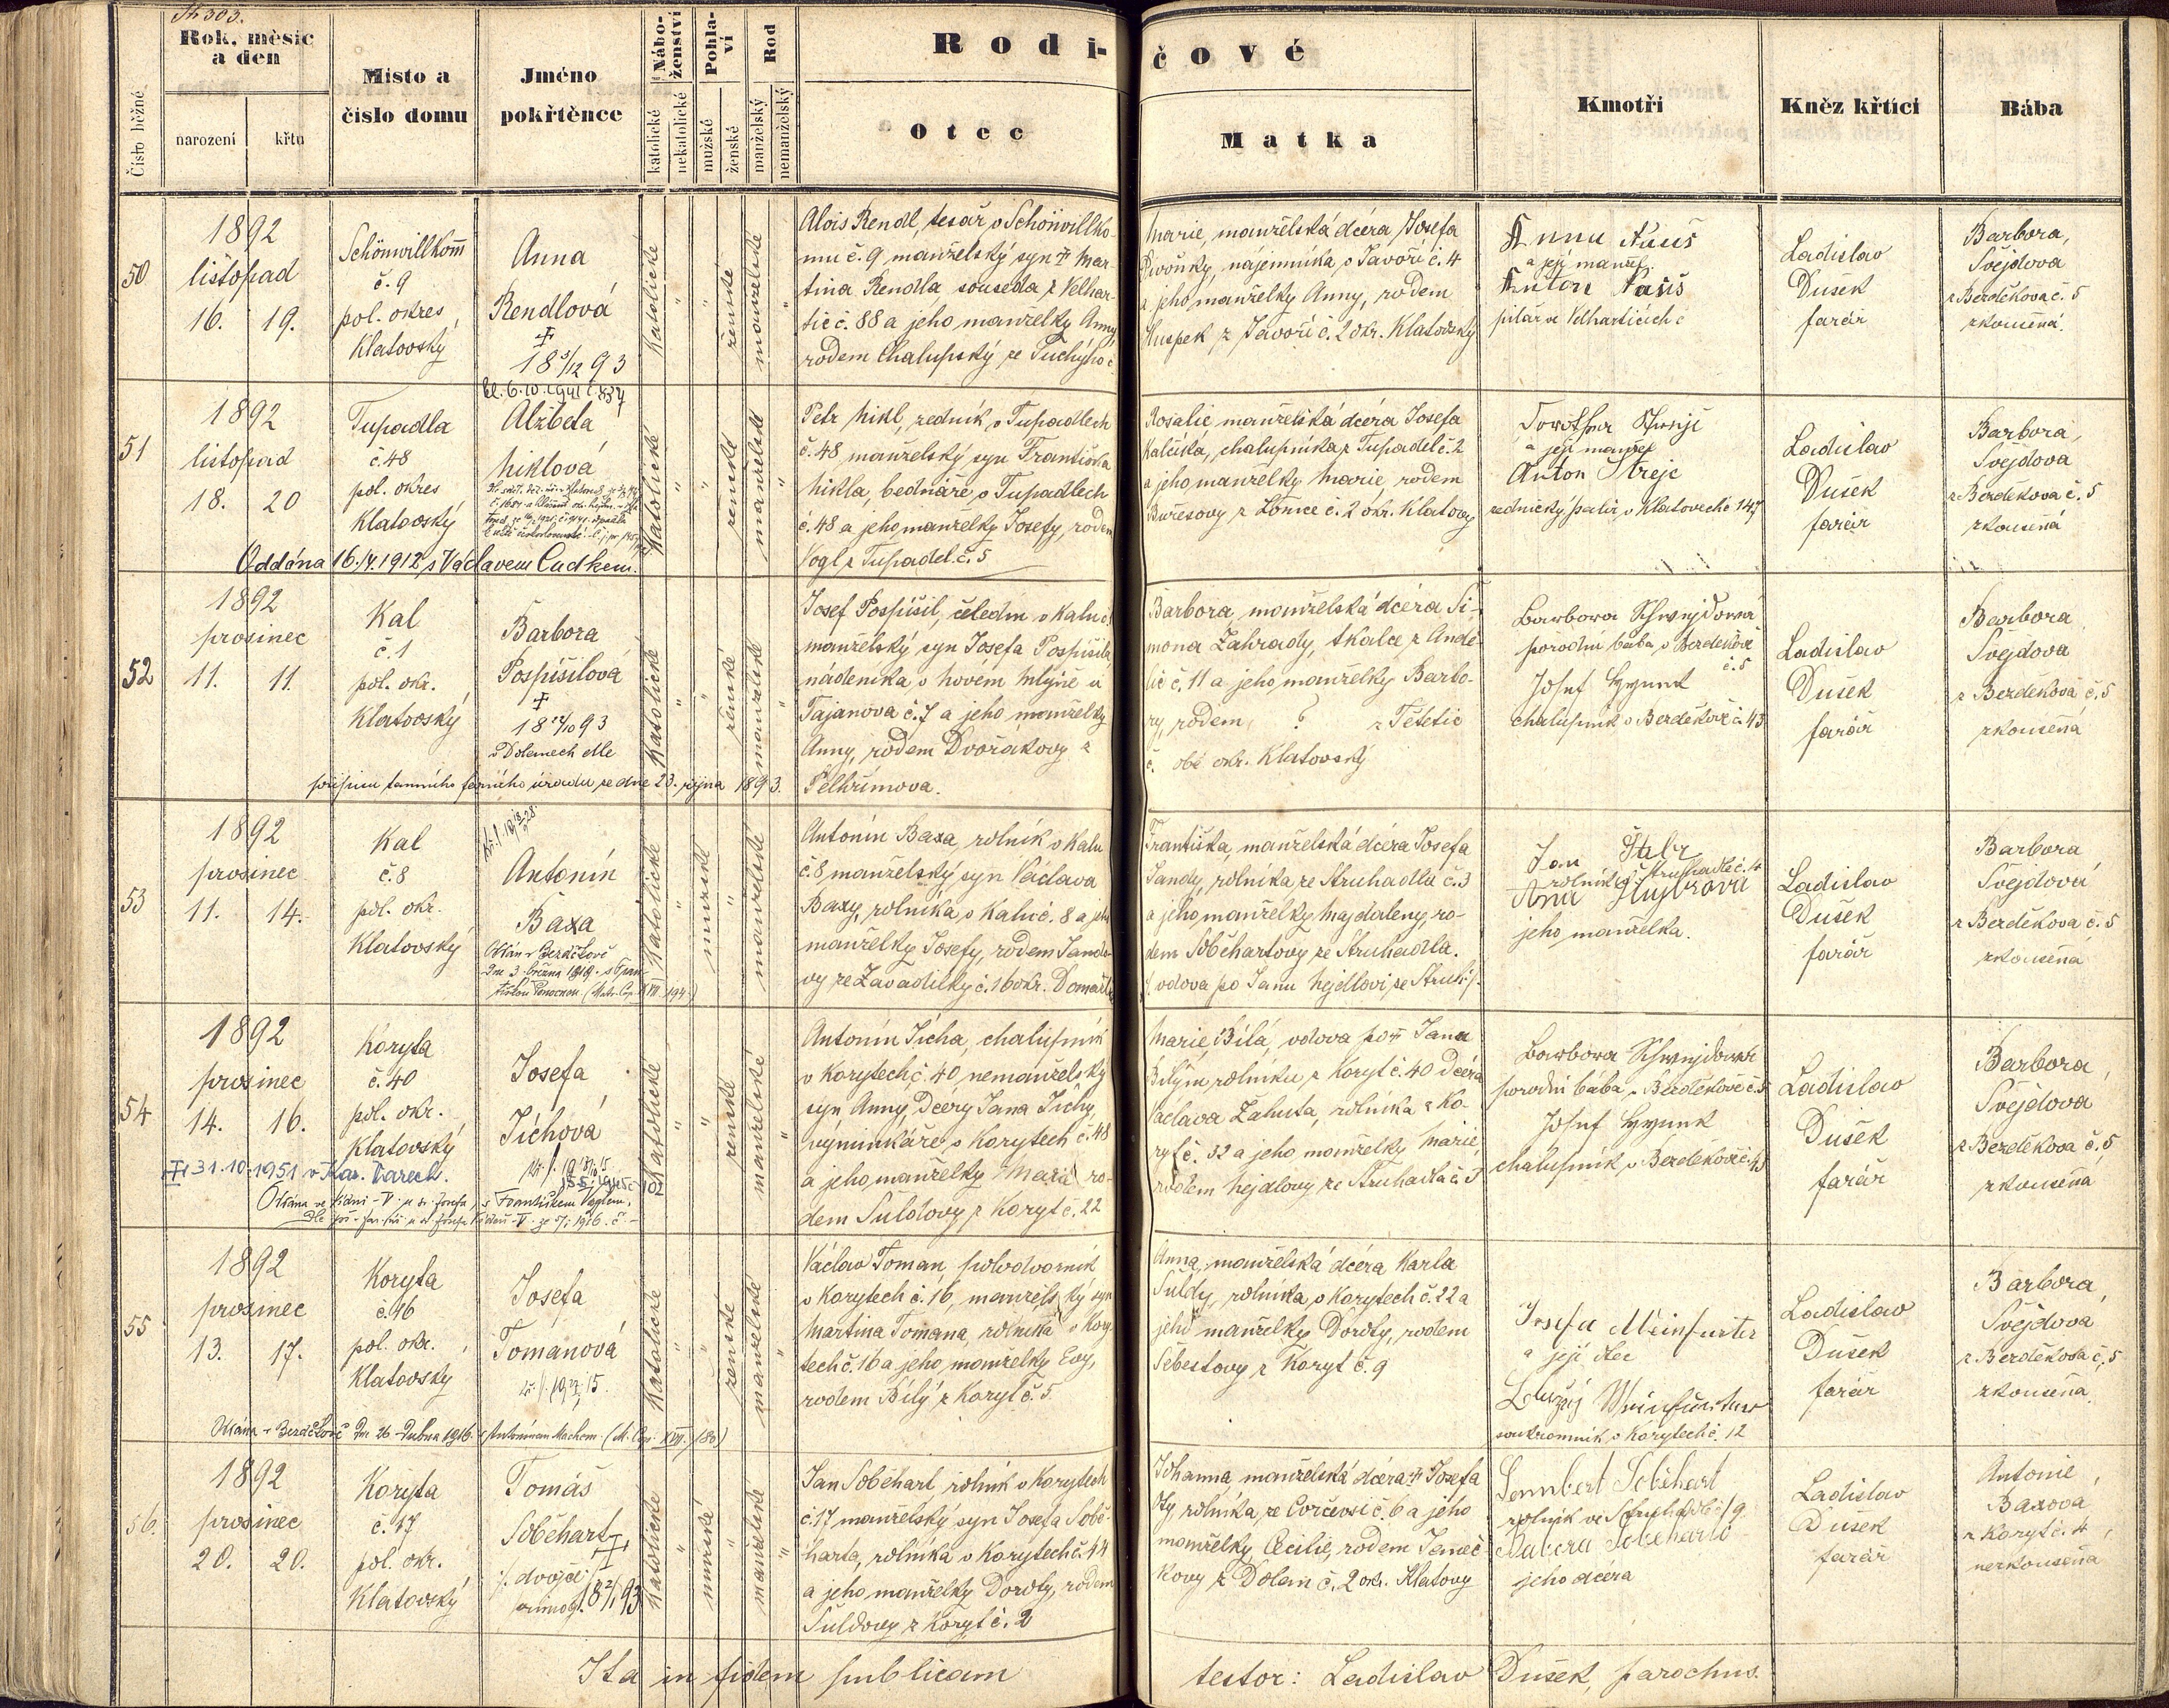 Str. 303.
Rok, měsíc
a den
narození
křtu
Číslo běžné
Místo a
číslo domu
Jméno
pokřtěnce
Nábo-
ženství
katolické
nekatolické
Pohla-
ví
mužské
ženské
Rod
manželský
nemanželský
Rodi-
čové
Otec
Matka
Kmotři
Kněz křtící
Bába
50
1892
listopad
16. 19.
Schönwillkomm
č. 9
pol. okres
Klatovský
Anna
Rendlová
18 93
Katolické
ženské
manželské
Alois Rendl, tesař v Schönwillko-
mu č. 9 manželský syn Mar-
tina Rendla souseda z Velhar-
tic č. 88 a jeho manželky Anny
rodem Chalupský ze Tuchýho č
Marie, manželská dcera Josefa
Pivoňky, nájemníka v Javoří č. 4
a jeho manželky Anny, rodem
z Javoří č. 2 okr. Klatovský
a její manžel
Anton
ve Velharticích č
Ladislav
Dušek
farář
Barbora,
Švejdova
z Bezděkova č. 5
zkoušená
51
1892
listopad
18. 20
Tupadla
č. 48
pol. okres
Klatovský
Alžběta
Niklová
Katolické
ženské
manželské
Oddána 16./4. 1912 s Václavem Cudkem.
Petr Nikl, zedník v Tupadlech
č. 48 manželský syn Františka
Nikla, bednáře v Tupadlech
č. 48 a jeho manželky Josefy, rodem
Vogl z Tupadel č. 5
Rosalie manželská dcera Josefa
Kalčíka, chalupníka z Tupadel č. 2
a jeho manželky Marie rodem
Burešovy z Lomce č. 2 okr. Klatovy
a její manžel
Anton Streje
zednický palír v Klatovech č 147
Ladislav
Dušek
farář
Barbora,
Švejdova
z Bezděkova č. 5
zkoušená
52
1892
prosinec
11. 11.
Kal
č. 1
pol. okr.
Klatovský
Barbora
Pospíšilová
18 93
v Dolanech dle
přípisu tamního farního úřadu ze dne 23. října 1893.
Katolické
ženské
manželské
Josef Pospíšil, čeledín v Kalu č.
manželský syn Josefa Pospíšila,
nádeníka v novém mlýně u
Tajanova č. 7 a jeho manželky
Anny, rodem Dvořákovy z
Pelhřimova.
Barbora, manželská dcera Ši-
mona Zahrady, tkalce z Andě-
lic č. 11 a jeho manželky Barbo-
ry, rodem ? z Tětětic
č. obě okr. Klatovský
porodní bába v Bezděkově
č. 5
Josef
chalupník v Bezděkově č. 43
Ladislav
Dušek
farář
Barbora
Švejdova
z Bezděkova č. 5
zkoušená
53
1892
prosinec
11. 14.
Kal
č. 8
pol. okr.
Klatovský
Antonín
Baxa
Oddán v Bezděkově
dne 3. března 1919
Katolické
mužské
manželské
Antonín Baxa, rolník v Kalu
č. 8 manželský syn Václava
Baxy, rolníka v Kalu č. 8 a jeho
manželky Josefy, rodem Jando-
vy ze Zavadilky č. 16 okr. Domažlic
Františka, manželská dcera Josefa
Jandy, rolníka ze Struhadla č. 3
a jeho manželky Majdaleny, ro-
dem Soběhartovy ze Struhadla.
vdova po Janu Nejdlovi ze Struh
Jan
rolník v Struhadle č. 4
Ana
jeho manželka.
Ladislav
Dušek
farář
Barbora
Švejdova
z Bezděkova č. 5
zkoušená
54
1892
prosinec
14. 16.
Koryta
č. 40
pol. okr.
Klatovský
Josefa
Tichová
31. 10. 1951 v Kar. Varech.
Katolické
ženské
manželské
Antonín Ticha, chalupník
v Korytech č. 40 nemanželský
syn Anny, dcery Jana Tichy,
výminkáře v Korytech č. 48
a jeho manželky Marie ro-
dem Šuldovy z Koryt č. 22
Marie Bílá, vdova po Janu
Bílým rolníku z Koryt č. 40 dcera
Václava Žahuta, rolníka z Ko-
ryt č. 32 a jeho manželky Marie,
rodem Nejdlovy ze Struhadla č. 3
porodní bába v Bezděkově č. 5
Josef
chalupník v Bezděkově č. 43
Ladislav
Dušek
farář
Barbora,
Švejdova
z Bezděkova č. 5
zkoušená
55
1892
prosinec
13. 17.
Koryta
č. 16
pol. okr.
Klatovský
Josefa
Tomanová
Oddána v Bezděkově dne 26. dubna 1916 s Antonínem Machem
Katolické
ženské
manželské
Václav Toman, polodvorník
v Korytech č. 16, manželský syn
Martina Tomana, rolníka v Kory-
tech č. 16 a jeho manželky Evy,
rodem Bílý z Koryt č. 5.
Anna, manželská dcera Karla
Šuldy, rolníka v Korytech č. 22 a
jeho manželky Doroty, rodem
Šebestovy z Koryt č. 9
Josefa
a její otec
soukromník v Korytech č. 12
Ladislav
Dušek
farář
Barbora,
Švejdova
z Bezděkova č. 5
zkoušená
56.
1892
prosinec
20. 20.
Koryta
č. 17
pol. okr.
Klatovský
Tomáš
Soběhart
dvojče
Katolické
mužské
manželské
Jan Soběhart, rolník v Korytech
č. 17 manželský syn Josefa Sobě-
harta, rolníka v Korytech č. 44
a jeho manželky Doroty, rodem
Šuldovy z Koryt č. 2
Johanna, manželská dcera Josefa
rolníka ze č. 6 a jeho
manželky Cecilie, rodem Janeč-
kovy z Dolan č. 2 okr. Klatovy
Soběhart
rolník ve Struhadle č 9
jeho dcera
Ladislav
Dušek
farář
Antonie
Baxová
z Koryt č. 4
nezkoušená
Ita in fidem publicam testor: Ladislav Dušek, parochus.